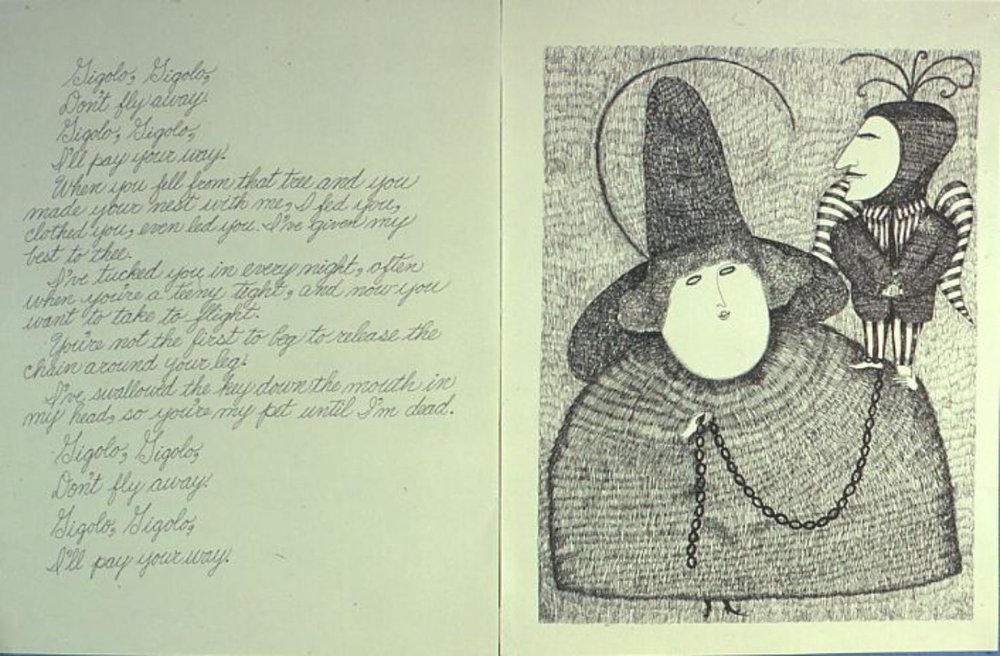 Gigolo, Gigolo,
Don't fly away!
Gigolo, Gigolo,
I'll pay your way!
When you fell from that tree and you
made your nest with me, I fed you,
clothed you, even led you. I've given my
best to thee.
I've tucked you in every night, often
when you're a teeny tight, and now you
want to take to flight.
You're not the first to beg to release the
chain around your leg!
I've swallowd the key down the mouth in
my head, so you're my pet until I'm dead.
Gigolo, Gigolo,
Don't fly away!
Gigolo, Gigolo,
I'll pay your way!